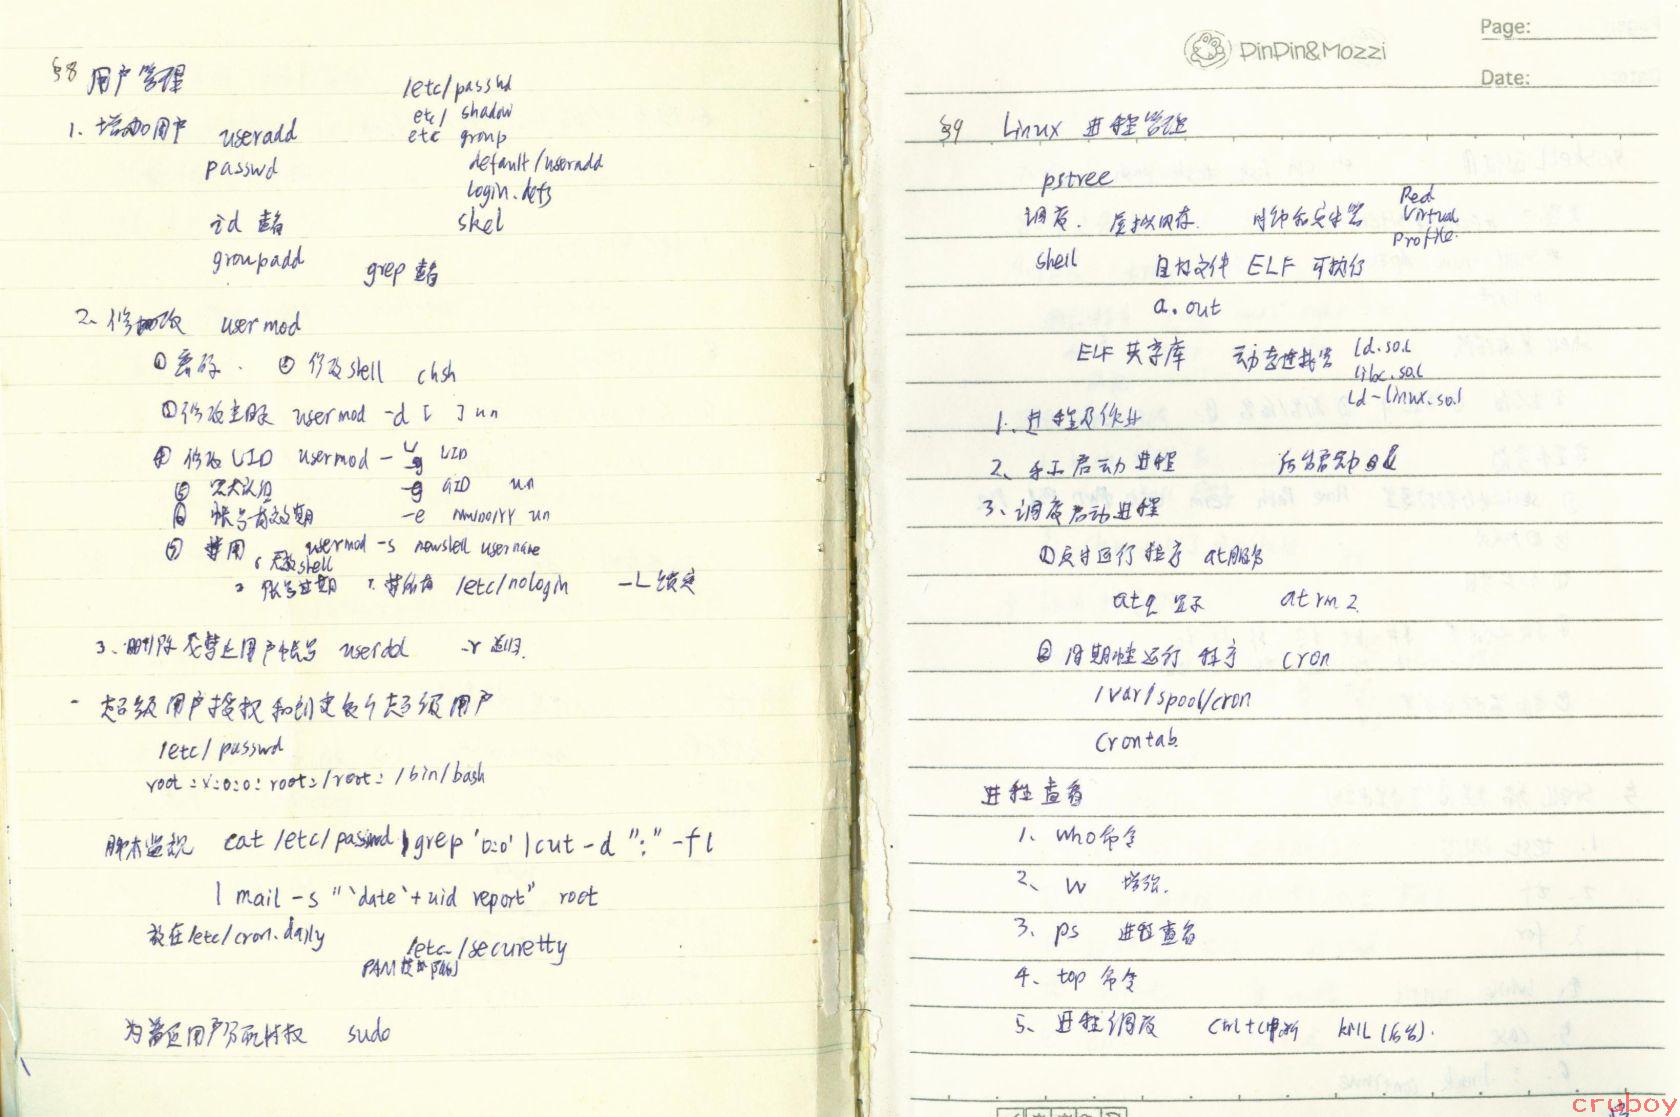 §8 用户管理
/etc/passwd
etc/ shadow
1. 增加用户 useradd
etc group
passwd
default/useradd
login.defs
id 查看
skel
groupadd
grep 查看
2、修改 usermod
① 密码. ② 修改shell chsh
修改主目录 usermod -d [ ] un
④ 修改UID usermod - u UID
⑤ -g GID un
⑥ 帐号有效期 -e MM/DD/YY un
⑦ 禁用 usermod -s newshell username
shell
帐号过期 /etc/nologin -L 锁定
3、删除 用户帐号 userdel -r
- 超级用户授权和创建多个超级用户
/etc/passwd
root:x:0:0:root:/root:/bin/bash
脚本监视 cat /etc/passwd | grep '0:0' | cut -d ":" -f1
| mail -s "`date`+uid report" root
放在/etc/cron.daily
/etc/securetty
PAM
为普通用户分配特权 sudo
DinDin&Mozzi
Page:
Date:
§9 Linux 进程管理
pstree
调度. 虚拟内存. 时钟和定时器 Real
Virtual
Profile.
shell 目标文件 ELF 可执行
a.out
ELF 共享库 动态连接器 ld.so.1
libc.so.1
ld-linux.so.1
1、进程及作业
2、手工启动进程 &
3、调度启动进程
① 运行程序 at服务
atq 显示 atrm 2
② 周期性运行 程序 cron
/var/spool/cron
crontab
进程查看
1、who命令
2、w 增强.
3、ps 进程查看
4、top 命令
5、进程调度 Ctrl+C中断 kill (后台).
cruboy